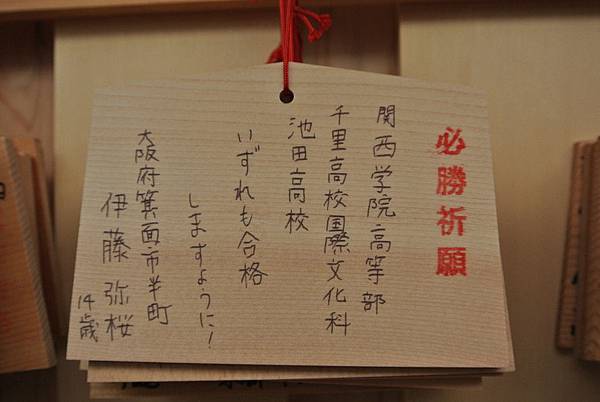 必勝祈願
関西学院高等部
千里高校国際文化科
池田高校
いずれも合格
しますように！
大阪府箕面市半町
伊藤弥桜
14歳